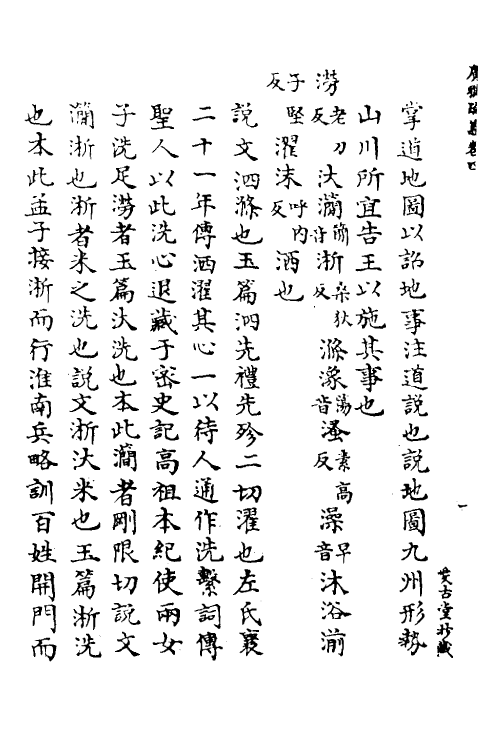 廣雅疏義卷四
掌道地圖以詔地事注道說也說地圖九州形勢
山川所宜告王以施其事也
澇老刀反汏㶕簡音淅桑狄反滌潒蕩音溞素高反澡早音沐浴湔
子堅反濯沬呼內反洒也
說文洒滌也玉篇洒先禮先殄二切濯也左氏襄
二十一年傳洒濯其心一以待人通作洗繫詞傳
聖人以此洗心退藏于密史記高祖本紀使兩女
子洗足澇者玉篇汏洗也本此㶕者剛限切說文
㶕淅也淅者米之洗也說文淅汏米也玉篇淅洗
也本此孟子接淅而行淮南兵略訓百姓開門而
一
古堂抄藏